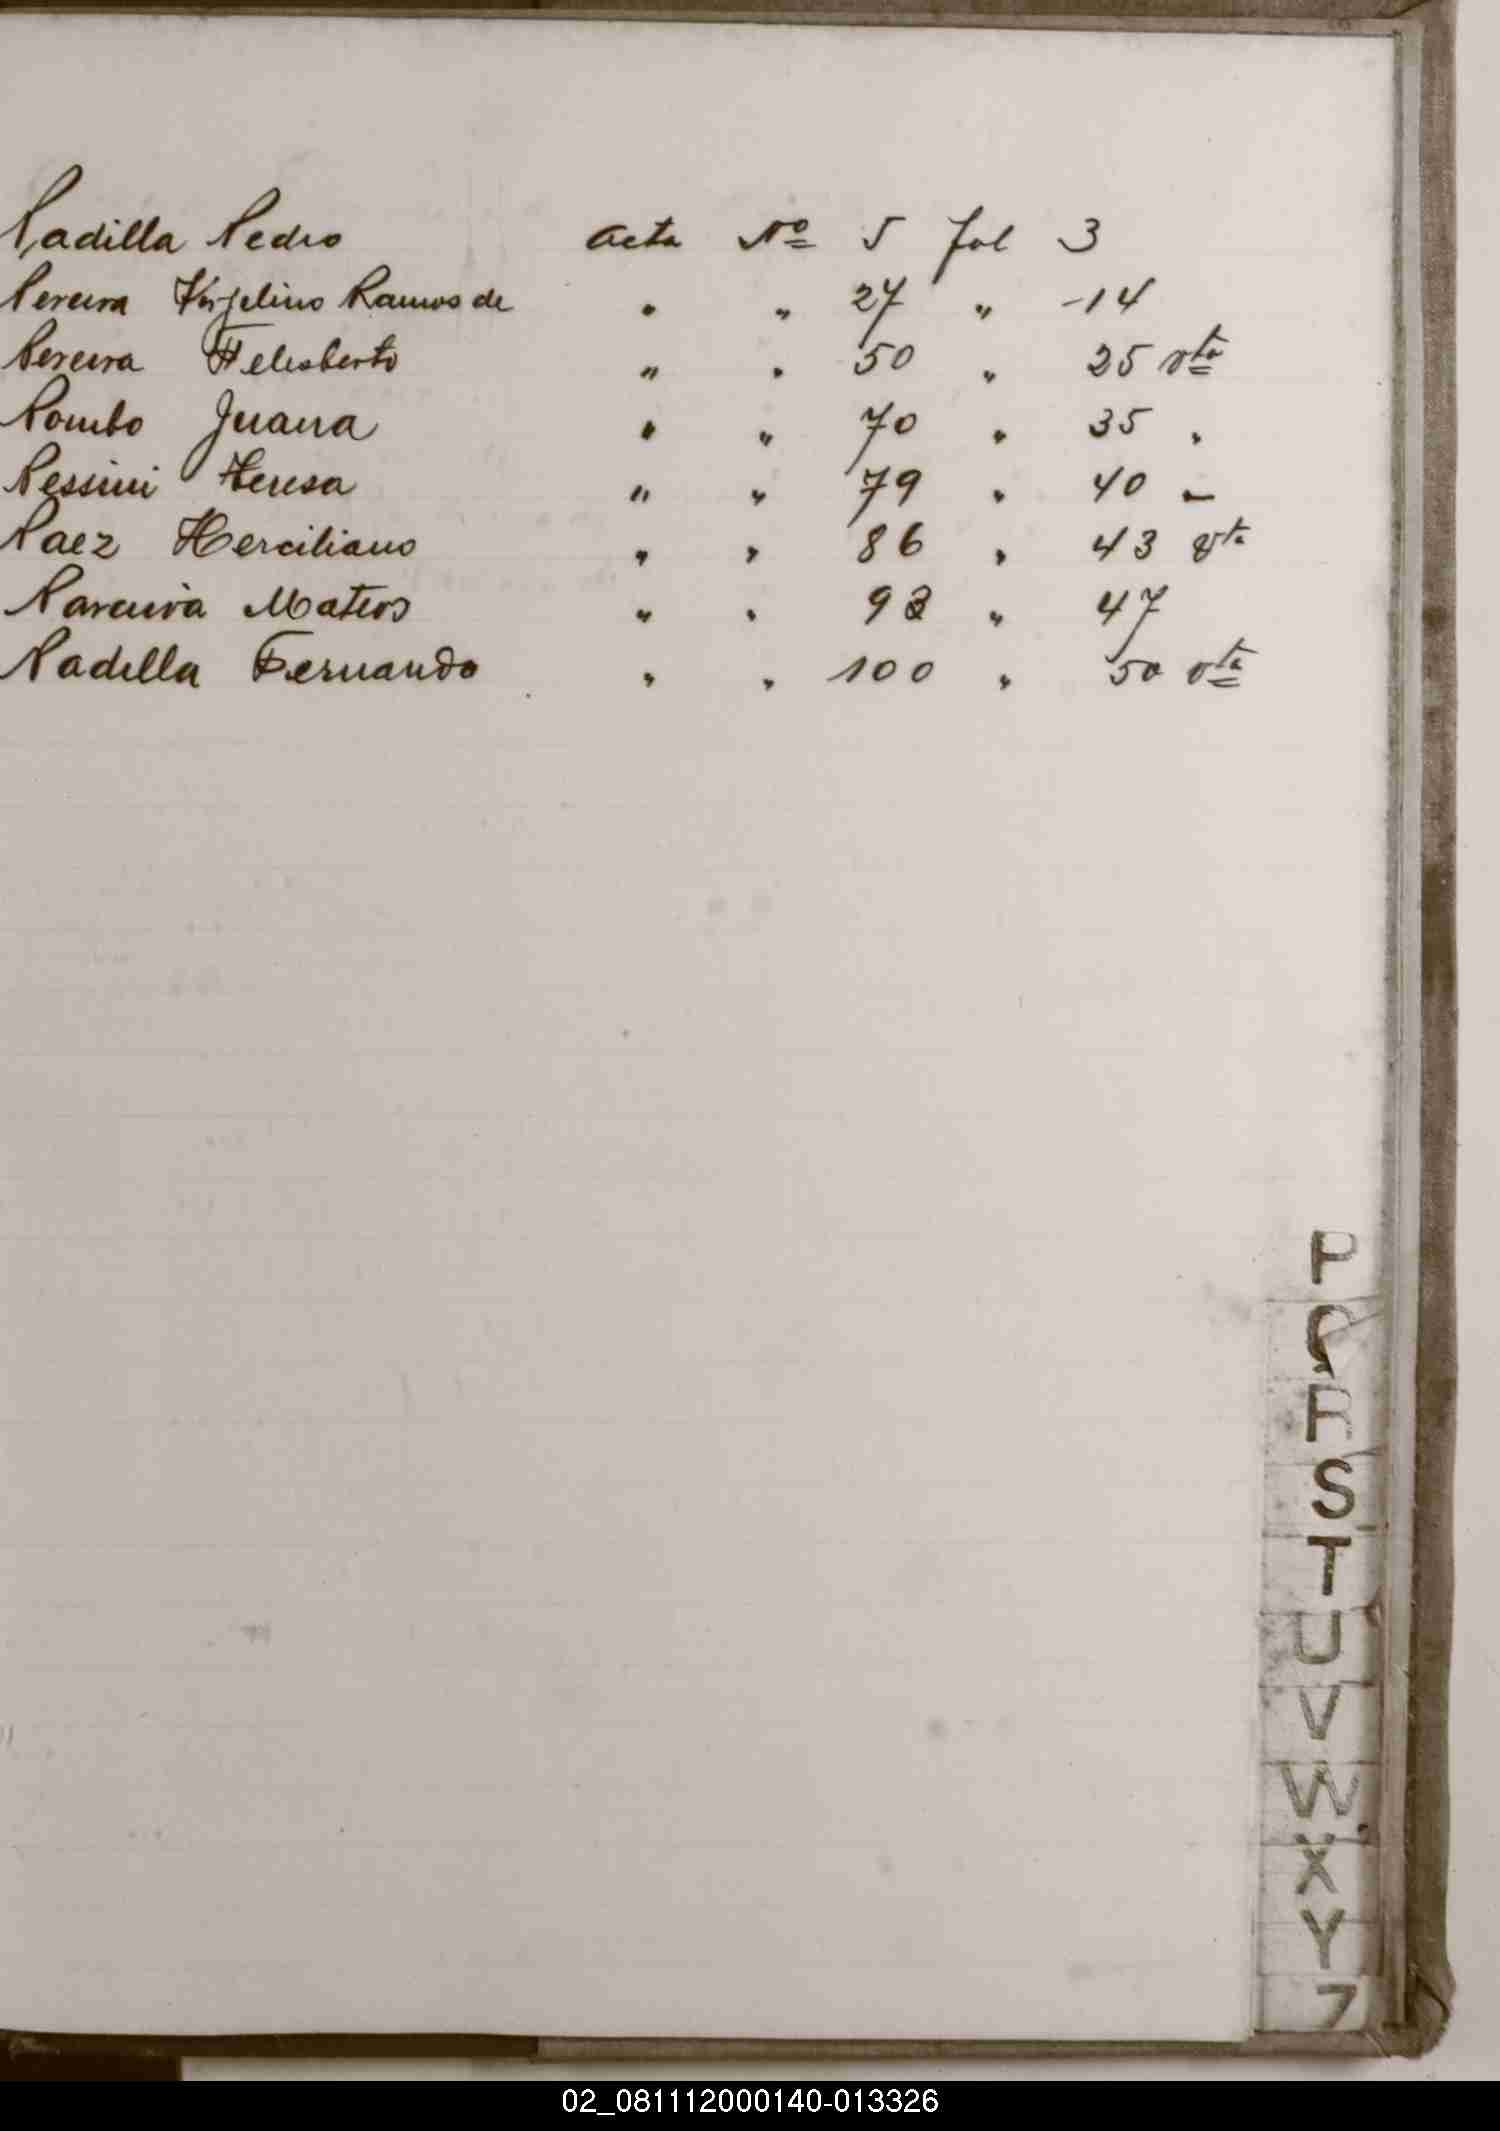 Padilla Pedro acta Nº 5 fol 3
Pereira Virjelino Ramos de " " 27 " -14
Pereira Felisberto " " 50 " 25 vta
Pombo Juana " " 70 " 35 "
Pessini Teresa " " 79 " 40 -
Paez Herciliano " " 86 " 43 vta
Pareira Mateos " " 93 " 47
Padilla Fernando " " 100 " 50 vta
P
Q
R
S
T
U
V
W
X
Y
Z
02_081112000140-013326